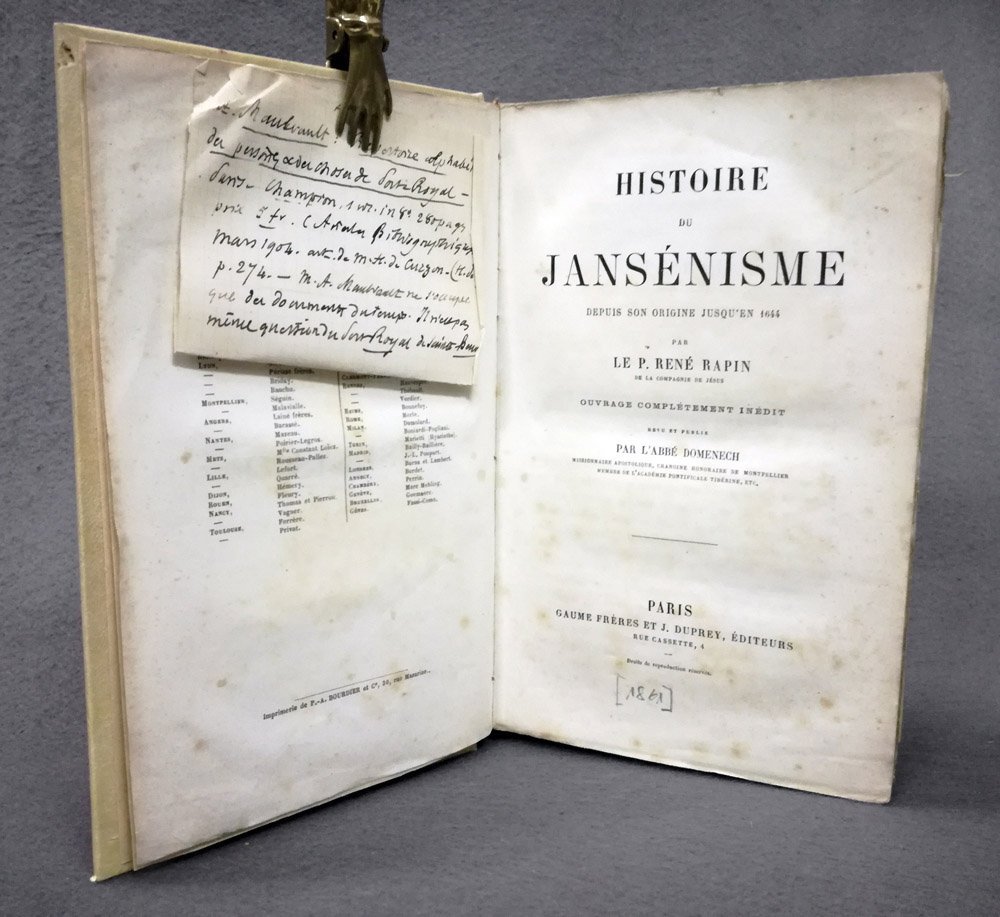 Maulvault
des personnes & des choses de Port-Royal –
Paris – Champion, 1 vol. in 8º. 280 pages
prix 5 fr. (Articles Bibliographiques
Mars 1904. art. de M. H. de Curzon –
p. 274. — M. A. Maulvault ne s'occupe
que des documents du temps. Il n'est pas
même question du Port Royal de Sainte-Beuve
LYON, Périsse frères.
— Briday.
— Bauchu.
MONTPELLIER, Séguin.
— Malavialle.
ANGERS, Lainé frères.
— Barassé.
NANTES, Mazeau.
— Poirier-Legros.
METZ, Mlle Constant Loiez.
— Rousseau-Pallez.
LILLE, Lefort.
— Quarré.
DIJON, Hémery.
ROUEN, Fleury.
NANCY, Thomas et Pierron.
— Vagner.
TOULOUSE, Ferrère.
— Privat.
RENNES, Hauvespre.
— Thébault.
— Verdier.
REIMS, Bonnefoy.
ROME, Merle.
MILAN, Dumolard.
— Boniardi-Pogliani.
TURIN, Marietti (Hyacinthe).
MADRID, Bailly-Baillière.
— J.-L. Poupart.
LONDRES, Burns et Lambert.
ANNECY, Burdet.
CHAMBÉRY, Perrin.
GENÈVE, Marc Mehling.
BRUXELLES, Goemaere.
GÊNES, Fassi-Como.
Imprimerie de P.-A. BOURDIER et Cie, 30, rue Mazarine.
HISTOIRE
DU
JANSÉNISME
DEPUIS SON ORIGINE JUSQU'EN 1644
PAR
LE P. RENÉ RAPIN
DE LA COMPAGNIE DE JÉSUS
OUVRAGE COMPLÉTEMENT INÉDIT
REVU ET PUBLIÉ
PAR L'ABBÉ DOMENECH
MISSIONNAIRE APOSTOLIQUE, CHANOINE HONORAIRE DE MONTPELLIER
MEMBRE DE L'ACADÉMIE PONTIFICALE TIBÉRINE, ETC.
PARIS
GAUME FRÈRES ET J. DUPREY, ÉDITEURS
RUE CASSETTE, 4
Droits de reproduction réservés.
[1861]